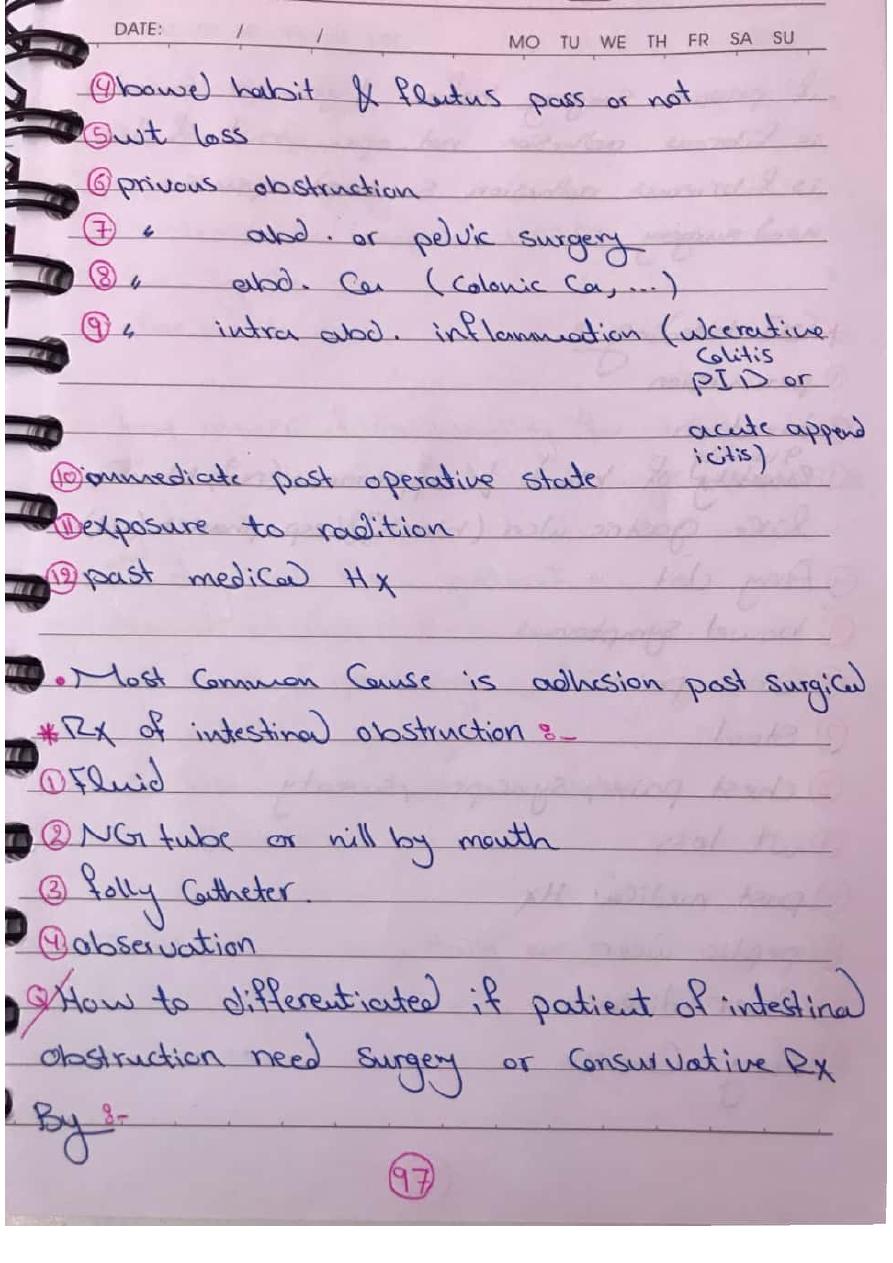 DATE: / /
MO TU WE TH FR SA SU
④ bowel habit & flutus pass or not
⑤ wt loss
⑥ privous obstruction
⑦ " abd. or pelvic surgery
⑧ " abd. Ca (Colonic Ca, ...)
⑨ " intra abd. inflammation (ulcerative
Colitis
PID or
acute append
icitis)
⑩ immediate post operative state
⑪ exposure to radition
⑫ past medical Hx
• Most Common Cause is adhesion past surgical
* Rx of intestinal obstruction :-
① Fluid
② NG tube or nill by mouth
③ folly Catheter.
④ observation
Q/ How to differentiated if patient of intestinal
obstruction need surgery or Consurvative Rx
By :-
97